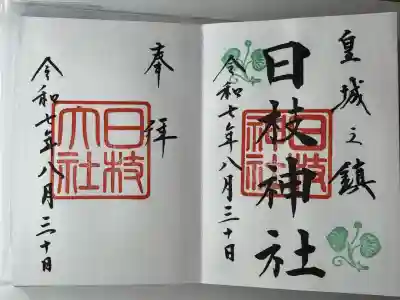 皇城之鎮
日枝神社
日枝
神社
令和七年八月三十日
奉拝
日枝
大社
令和七年八月三十日